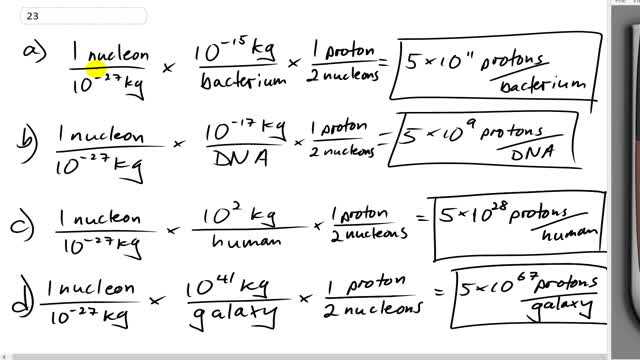 23
a) 1 nucleon / 10⁻²⁷ kg × 10⁻¹⁵ kg / bacterium × 1 proton / 2 nucleons = 5 × 10¹¹ protons / bacterium
b) 1 nucleon / 10⁻²⁷ kg × 10⁻¹⁷ kg / DNA × 1 proton / 2 nucleons = 5 × 10⁹ protons / DNA
c) 1 nucleon / 10⁻²⁷ kg × 10² kg / human × 1 proton / 2 nucleons = 5 × 10²⁸ protons / human
d) 1 nucleon / 10⁻²⁷ kg × 10⁴¹ kg / galaxy × 1 proton / 2 nucleons = 5 × 10⁶⁷ protons / galaxy